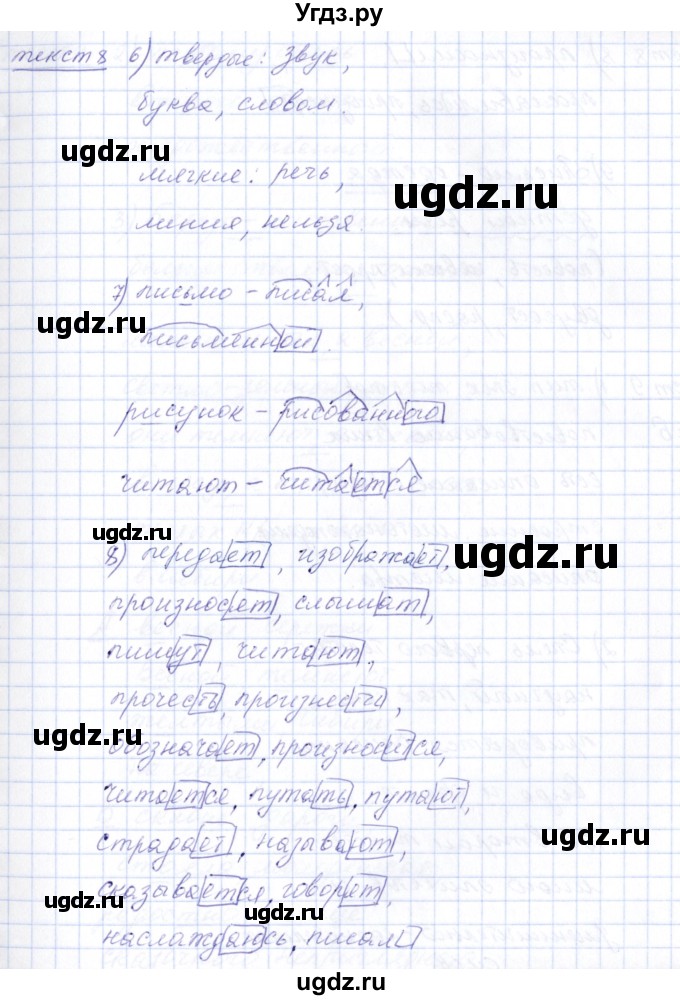 Угдз.ру
текст 8 6) твердые: звук,
буква, словом.
мягкие: речь,
линия, нельзя.
7) письмо – писал,
письменной.
рисунок – рисованного
читают – читается
8) передает, изображает,
произносет, слышат,
пишут, читают,
прочесть, произнести
обозначает, произносится,
читается, путать, путают
страдает, называют,
сказывается, говорет,
наслаждаюсь, писал
ugdz.ru
ugdz.ru
ugdz.ru
ugdz.ru
ugdz.ru
ugdz.ru
ugdz.ru
ugdz.ru
ugdz.ru
ugdz.ru
ugdz.ru
ugdz.ru